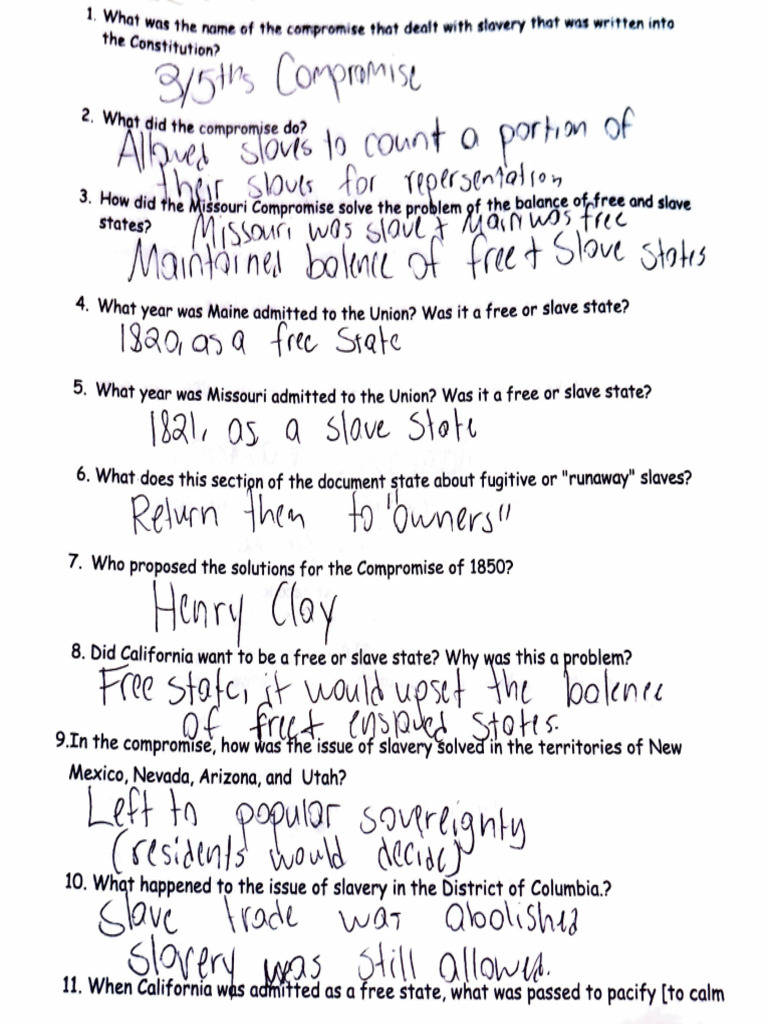 1. What was the name of the compromise that dealt with slavery that was written into
the Constitution?
3/5ths Compromise
2. What did the compromise do?
Allowed slaves to count a portion of
their slaves for repersentation
3. How did the Missouri Compromise solve the problem of the balance of free and slave
states? Missouri was slave + Main was free
Maintained balence of free + Slave states
4. What year was Maine admitted to the Union? Was it a free or slave state?
1820, as a free State
5. What year was Missouri admitted to the Union? Was it a free or slave state?
1821, as a slave State
6. What does this section of the document state about fugitive or "runaway" slaves?
Return them to "owners"
7. Who proposed the solutions for the Compromise of 1850?
Henry Clay
8. Did California want to be a free or slave state? Why was this a problem?
Free state, it would upset the balence
of free + enslaved states.
9.In the compromise, how was the issue of slavery solved in the territories of New
Mexico, Nevada, Arizona, and Utah?
Left to popular sovereignty
(residents would decide)
10. What happened to the issue of slavery in the District of Columbia.?
Slave trade was abolished
slavery was still allowed.
11. When California was admitted as a free state, what was passed to pacify [to calm